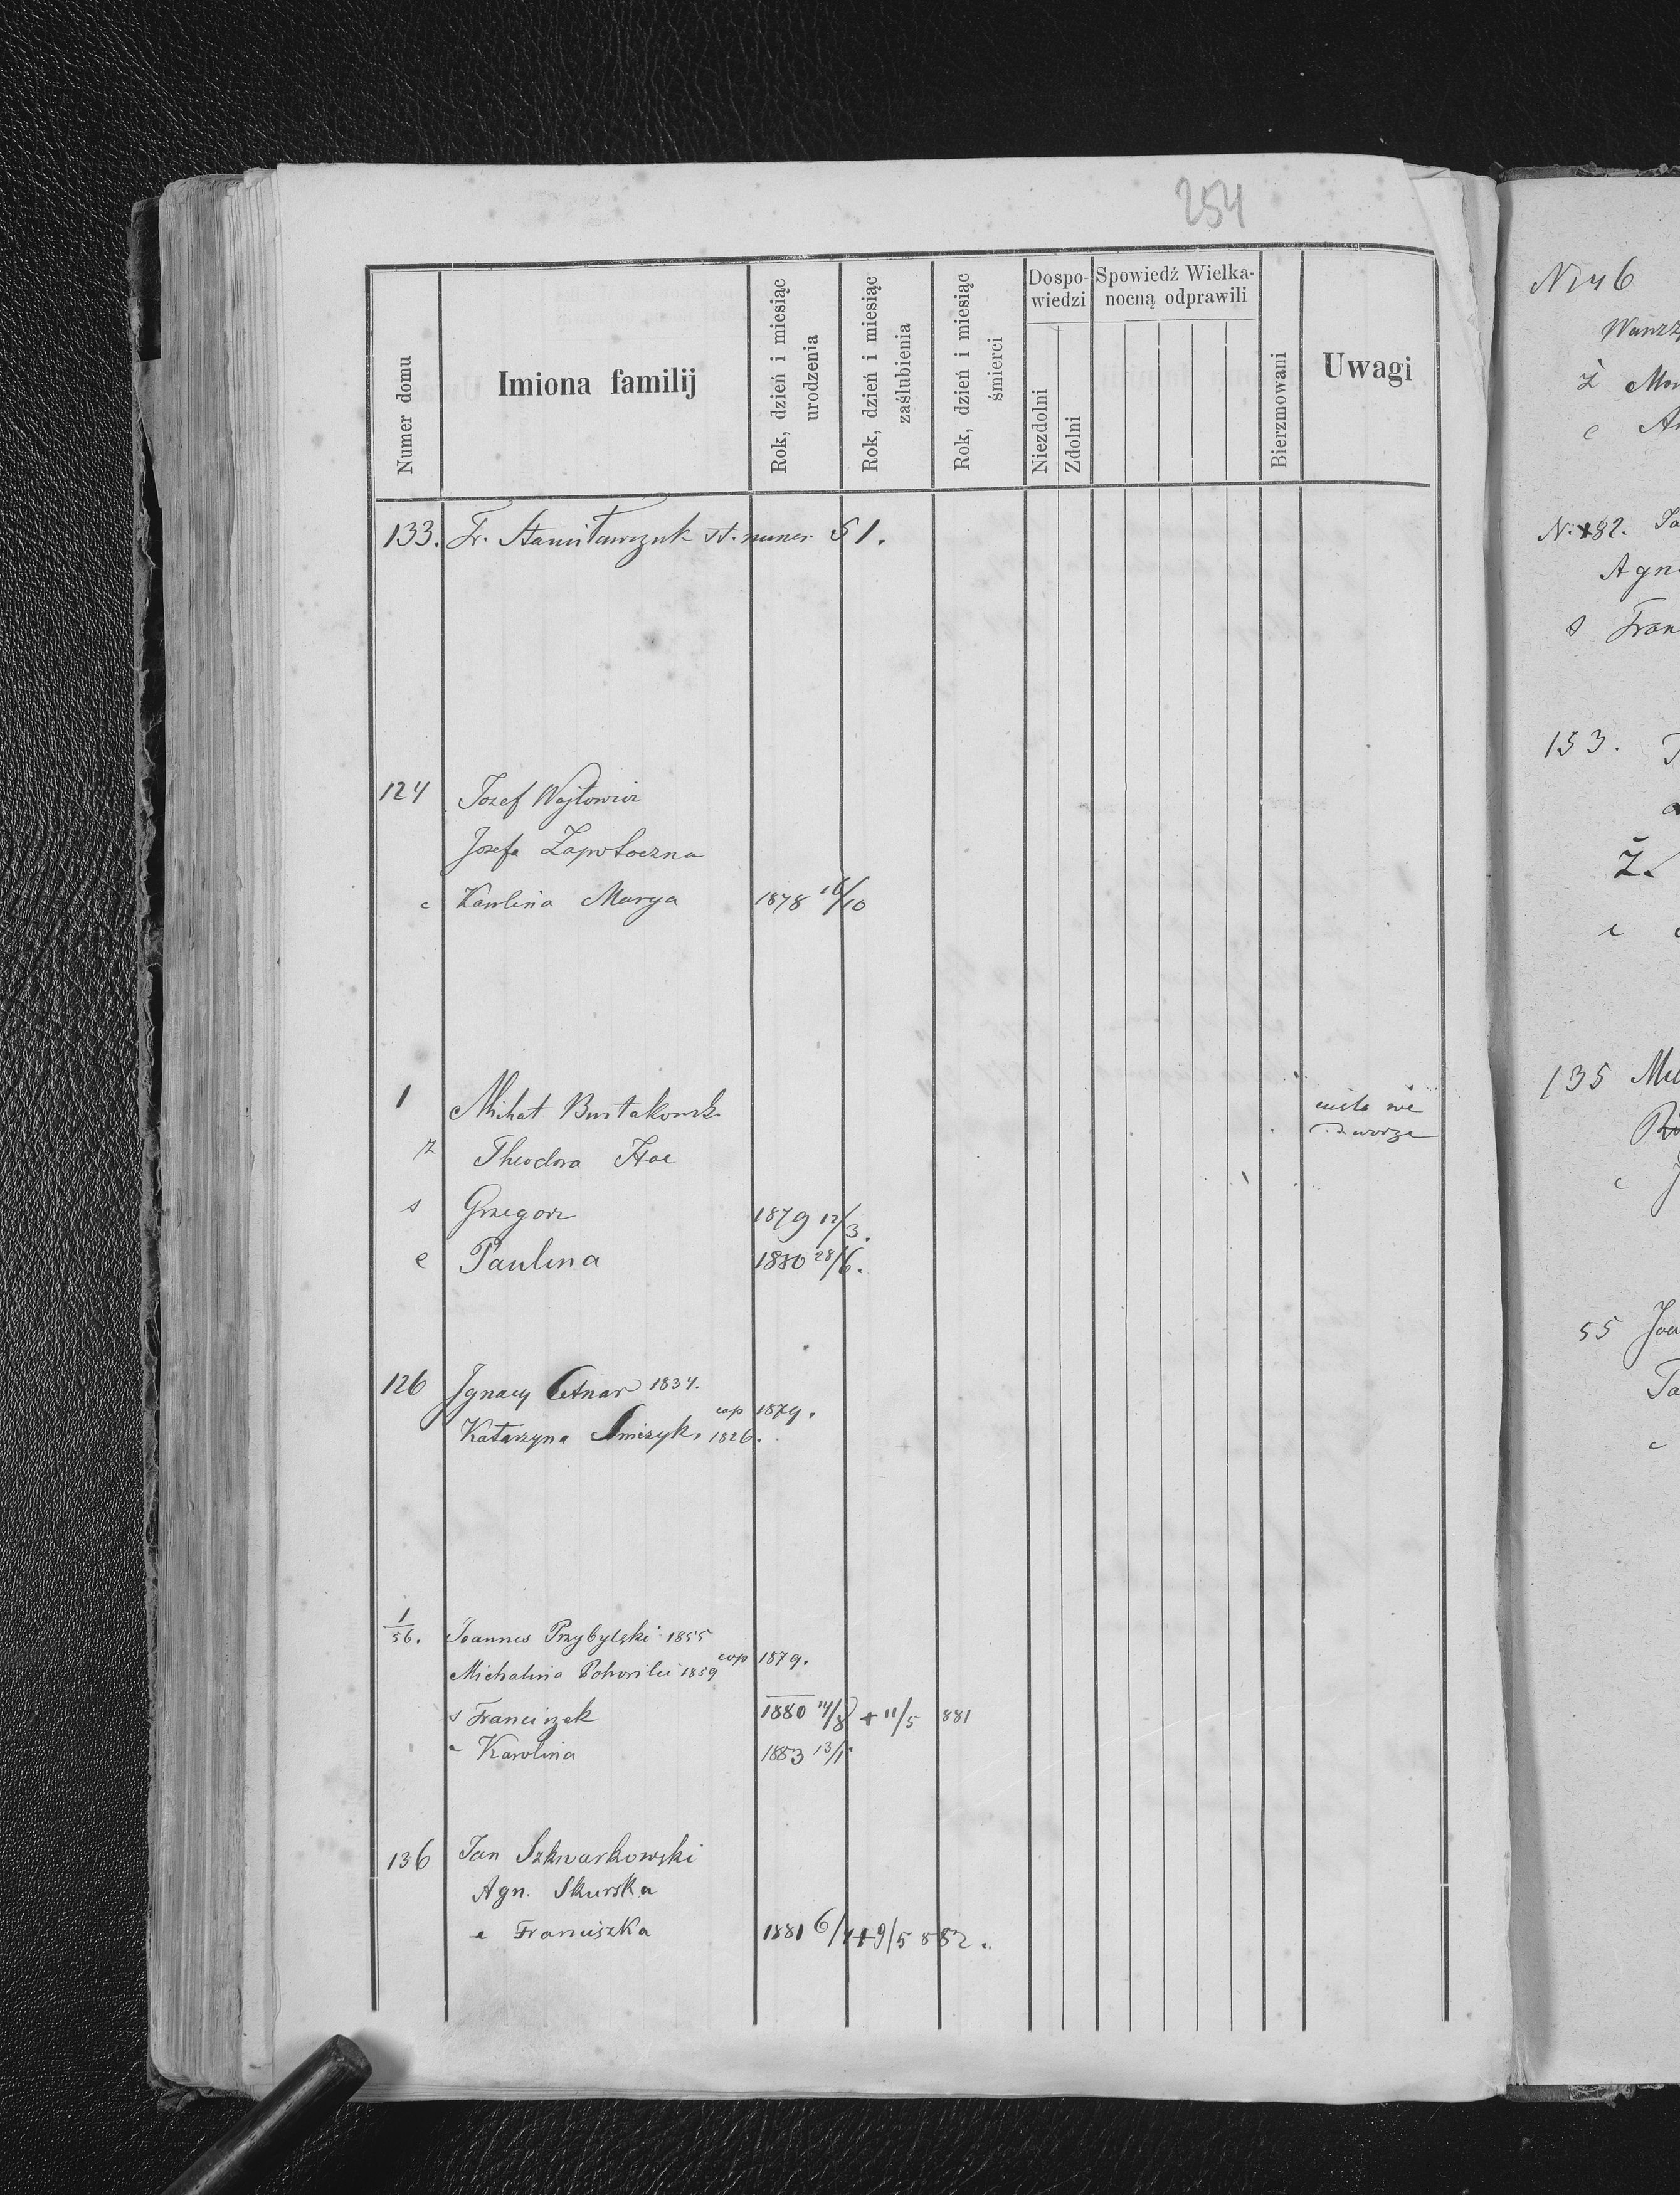 254
Numer domu
Imiona familij
Rok, dzień i miesiąc urodzenia
Rok, dzień i miesiąc zaślubienia
Rok, dzień i miesiąc śmierci
Dospo-
wiedzi
Niezdolni
Zdolni
Spowiedź Wielka-
nocną odprawili
Bierzmowani
Uwagi
133. Fr. Stanisławczuk st. numer 51.
124 Jozef Wojtowicz
Josefa Zapotoczna
c Karolina Marya 1878 16/10
1 Michał Burtakowsk.
we
dworze
ż Theodora
s Grzegorz 1879 12/3.
c Paulina 1880 28/6.
126 Ignacy Cetnar 1834.
cop 1879.
Katarzyna 1826.
1/56. Joannes Przybylski 1855
cop 1879.
Michalina 1859
s Franciszek 1880 14/8 + 11/5 881
c Karolina 1883 13/1
136 Jan Szkwarkowski
Agn. Skurska
c Franciszka 1881 6/4 + 9/5 882.
Nr 46
N. 182.
Agni
s Fran
153.
Ż.
c
135
c
55
c